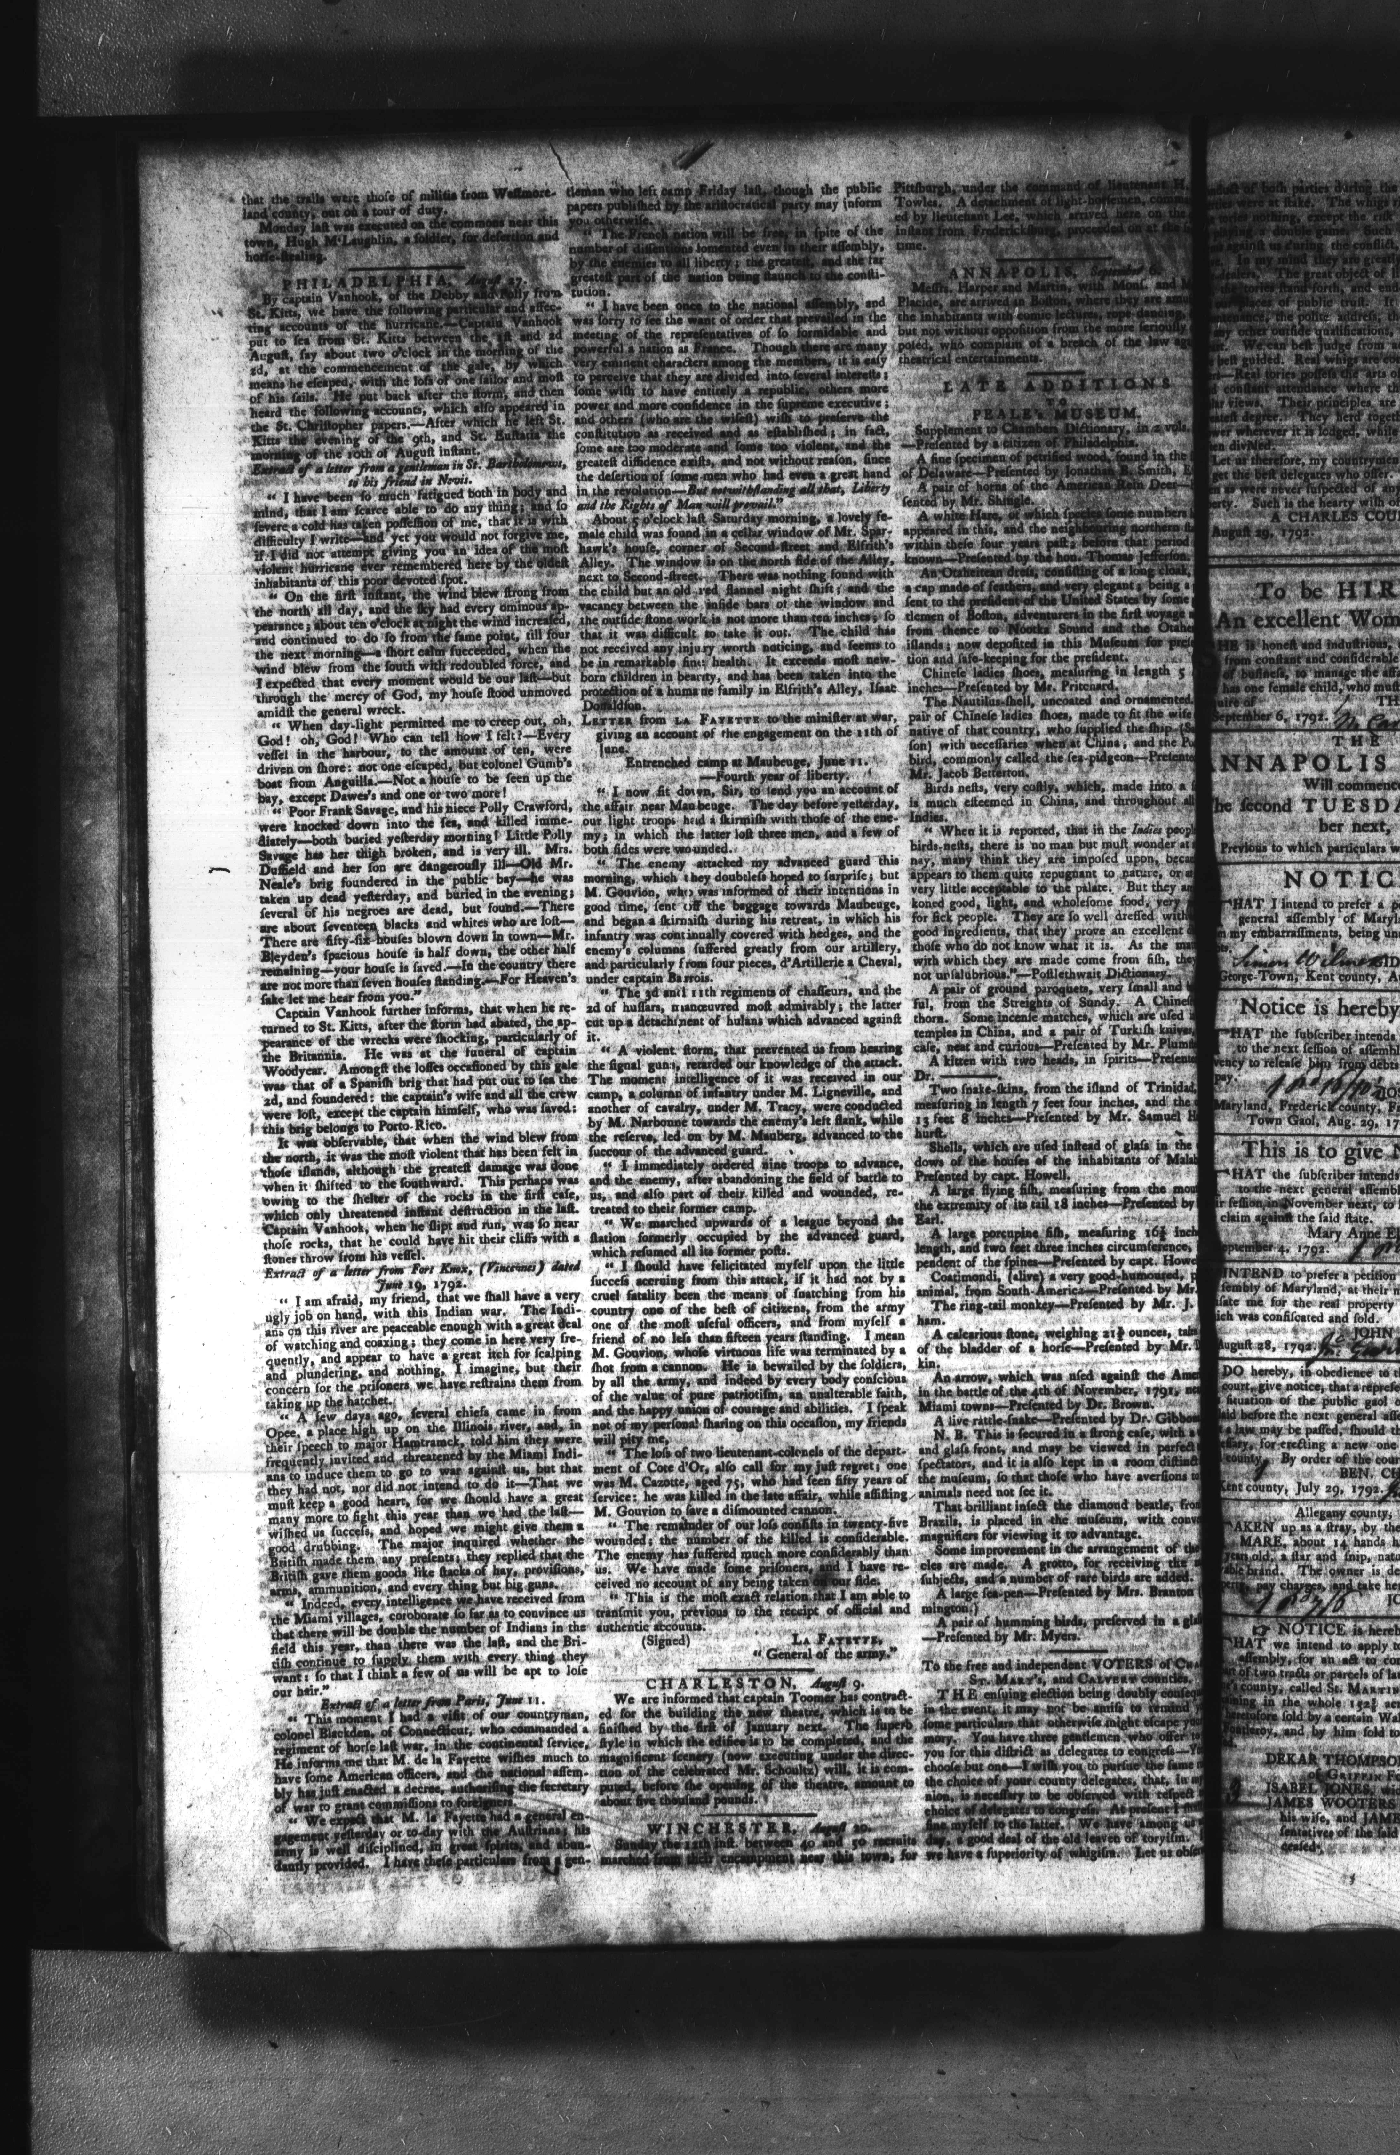 that the trails were those of militia from Westmore-
land county, out on a tour of duty.
Monday last was executed on the commons near this
town, Hugh M'Laughlin, a soldier, for desertion and
horse-stealing.
PHILADELPHIA, August 27.
By captain Vanhook, of the Debby and Polly from
St. Kitts, we have the following particular and affec-
ting accounts of the hurricane.—Captain Vanhook
put to sea from St. Kitts between the 1st and 2d
August, say about two o'clock in the morning of the
2d, at the commencement of the gale, by which
means he escaped, with the loss of one sailor and most
of his sails. He put back after the storm, and then
heard the following accounts, which also appeared in
the St. Christopher papers.—After which he left St.
Kitts the evening of the 9th, and St. Eustatia the
morning of the 10th of August instant.
Extract of a letter from a gentleman in St. Bartholomews,
to his friend in Nevis.
“ I have been so much fatigued both in body and
mind, that I am scarce able to do any thing; and so
severe a cold has taken possession of me, that it is with
difficulty I write—and yet you would not forgive me,
if I did not attempt giving you an idea of the most
violent hurricane ever remembered here by the oldest
inhabitants of this poor devoted spot.
“ On the first instant, the wind blew strong from
the north all day, and the sky had every ominous ap-
pearance; about ten o'clock at night the wind increased,
and continued to do so from the same point, till four
the next morning—a short calm succeeded, when the
wind blew from the south with redoubled force, and
I expected that every moment would be our last—but
through the mercy of God, my house stood unmoved
amidst the general wreck.
“ When day-light permitted me to creep out, oh,
God! oh, God! Who can tell how I felt?—Every
vessel in the harbour, to the amount of ten, were
driven on shore: not one escaped, but colonel Gumb's
boat from Anguilla.—Not a house to be seen up the
bay, except Dawes's and one or two more!
“ Poor Frank Savage, and his niece Polly Crawford,
were knocked down into the sea, and killed imme-
diately—both buried yesterday morning! Little Polly
Savage has her thigh broken, and is very ill. Mrs.
Duffield and her son are dangerously ill—Old Mr.
Neale's brig foundered in the public bay—he was
taken up dead yesterday, and buried in the evening;
several of his negroes are dead, but found.—There
are about seventeen blacks and whites who are lost—
There are fifty-six houses blown down in town—Mr.
Bleyden's spacious house is half down, the other half
remaining—your house is saved.—In the country there
are not more than seven houses standing.—For Heaven's
sake let me hear from you.”
Captain Vanhook further informs, that when he re-
turned to St. Kitts, after the storm had abated, the ap-
pearance of the wrecks were shocking, particularly of
the Britannia. He was at the funeral of captain
Woodyear. Amongst the losses occasioned by this gale
was that of a Spanish brig that had put out to sea the
2d, and foundered: the captain's wife and all the crew
were lost, except the captain himself, who was saved:
this brig belongs to Porto-Rico.
It was observable, that when the wind blew from
the north, it was the most violent that has been felt in
those islands, although the greatest damage was done
when it shifted to the southward. This perhaps was
owing to the shelter of the rocks in the first case,
which only threatened instant destruction in the last.
Captain Vanhook, when he slipt and run, was so near
those rocks, that he could have hit their cliffs with a
stones throw from his vessel.
Extract of a letter from Fort Knox, (Vincennes) dated
June 19, 1792.
“ I am afraid, my friend, that we shall have a very
ugly job on hand, with this Indian war. The Indi-
ans on this river are peaceable enough with a great deal
of watching and coaxing; they come in here very fre-
quently, and appear to have a great itch for scalping
and plundering, and nothing, I imagine, but their
concern for the prisoners we have restrains them from
taking up the hatchet.
“ A few days ago, several chiefs came in from
Opee, a place high up on the Illinois river, and, in
their speech to major Hamtramck, told him they were
frequently invited and threatened by the Miami Indi-
ans to induce them to go to war against us, but that
they had not, nor did not intend to do it—That we
must keep a good heart, for we should have a great
many more to fight this year than we had the last—
wished us success, and hoped we might give them a
good drubbing. The major inquired whether the
British made them any presents; they replied that the
British gave them goods like stacks of hay, provisions,
arms, ammunition, and every thing but big guns.
“ Indeed, every intelligence we have received from
the Miami villages, coroborate so far as to convince us
that there will be double the number of Indians in the
field this year, than there was the last, and the Bri-
tish continue to supply them with every thing they
want: so that I think a few of us will be apt to lose
our hair.”
Extract of a letter from Paris, June 11.
“ This moment I had a visit of our countryman,
colonel Blackden, of Connecticut, who commanded a
regiment of horse last war, in the continental service,
He informs me that M. de la Fayette wishes much to
have some American officers, and the national assem-
bly has just enacted a decree, authorising the secretary
of war to grant commissions to foreigners.
“ We expect that M. la Fayette had a general en-
gagement yesterday or to-day with the Austrians; his
army is well disciplined, in great spirits, and abun-
dantly provided. I have these particulars from a gen-
tleman who left camp Friday last, though the public
papers published by the aristocratical party may inform
you otherwise.
“ The French nation will be free, in spite of the
number of dissentions fomented even in their assembly,
by the enemies to all liberty; the greatest, and the far
greatest part of the nation being staunch to the consti-
tution.
“ I have been once to the national assembly, and
was sorry to see the want of order that prevailed in the
meeting of the representatives of so formidable and
powerful a nation as France. Though there are many
very eminent characters among the members, it is easy
to perceive that they are divided into several interests;
some wish to have entirely a republic, others more
power and more confidence in the supreme executive;
and others (who are the wisest) wish to preserve the
constitution as received and as established; in fact,
some are too moderate and some too violent, and the
greatest diffidence exists, and not without reason, since
the desertion of some men who had even a great hand
in the revolution—But notwithstanding all that, Liberty
and the Rights of Man will prevail.”
About 5 o'clock last Saturday morning, a lovely fe-
male child was found in a cellar window of Mr. Spar-
hawk's house, corner of Second-street and Elfrith's
Alley. The window is on the north side of the Alley,
next to Second-street. There was nothing found with
the child but an old red flannel night shift; and the
vacancy between the inside bars of the window and
the outside stone work is not more than ten inches; so
that it was difficult to take it out. The child has
not received any injury worth noticing, and seems to
be in remarkable fine health. It exceeds most new-
born children in beauty, and has been taken into the
protection of a humane family in Elfrith's Alley, Isaac
Donaldson.
LETTER from LA FAYETTE to the minister at war,
giving an account of the engagement on the 11th of
June.
Entrenched camp at Maubeuge, June 11.
—Fourth year of liberty.
“ I now sit down, Sir, to send you an account of
the affair near Maubeuge. The day before yesterday,
our light troops had a skirmish with those of the ene-
my; in which the latter lost three men, and a few of
both sides were wounded.
“ The enemy attacked my advanced guard this
morning, which they doubtless hoped to surprise; but
M. Gouvion, who was informed of their intentions in
good time, sent off the baggage towards Maubeuge,
and began a skirmish during his retreat, in which his
infantry was continually covered with hedges, and the
enemy's columns suffered greatly from our artillery,
and particularly from four pieces, d'Artillerie a Cheval,
under captain Barrois.
“ The 3d and 11th regiments of chasseurs, and the
2d of hussars, manœuvred most admirably; the latter
cut up a detachment of hulans which advanced against
it.
“ A violent storm, that prevented us from hearing
the signal guns, retarded our knowledge of the attack.
The moment intelligence of it was received in our
camp, a column of infantry under M. Ligneville, and
another of cavalry, under M. Tracy, were conducted
by M. Narbonne towards the enemy's left flank, while
the reserve, led on by M. Mauberg, advanced to the
succour of the advanced guard.
“ I immediately ordered nine troops to advance,
and the enemy, after abandoning the field of battle to
us, and also part of their killed and wounded, re-
treated to their former camp.
“ We marched upwards of a league beyond the
station formerly occupied by the advanced guard,
which resumed all its former posts.
“ I should have felicitated myself upon the little
success accruing from this attack, if it had not by a
cruel fatality been the means of snatching from his
country one of the best of citizens, from the army
one of the most useful officers, and from myself a
friend of no less than fifteen years standing. I mean
M. Gouvion, whose virtuous life was terminated by a
shot from a cannon. He is bewailed by the soldiers,
by all the army, and indeed by every body conscious
of the value of pure patriotism, an unalterable faith,
and the happy union of courage and abilities. I speak
not of my personal sharing on this occasion, my friends
will pity me.
“ The loss of two lieutenant-colonels of the depart-
ment of Cote d'Or, also call for my just regret; one
was M. Cazotte, aged 75, who had seen fifty years of
service: he was killed in the late affair, while assisting
M. Gouvion to save a dismounted cannon.
“ The remainder of our loss consists in twenty-five
wounded; the number of the killed is considerable.
The enemy has suffered much more considerably than
us. We have made some prisoners, and I have re-
ceived no account of any being taken on our side.
“ This is the most exact relation that I am able to
transmit you, previous to the receipt of official and
authentic accounts.
(Signed) LA FAYETTE,
“ General of the army.”
CHARLESTON, August 9.
We are informed that captain Toomer has contract-
ed for the building the new theatre, which is to be
finished by the first of January next. The superb
style in which the edifice is to be completed, and the
magnificent scenery (now executing under the direc-
tion of the celebrated Mr. Schoultz) will, it is com-
puted, before the opening of the theatre, amount to
about five thousand pounds.
WINCHESTER, August 20.
Sunday the 12th inst. between 40 and 50 recruits
marched from their encampment near this town, for
Pittsburgh, under the command of lieutenant H.
Towles. A detachment of light-horsemen, comma
ed by lieutenant Lee, which arrived here on the
instant from Fredericksburg, proceeded on at the
time.
ANNAPOLIS, September 6.
Messrs. Harper and Martin, with Mons. and M
Placide, are arrived in Boston, where they are amu
the inhabitants with comic lectures, rope-dancing,
but not without opposition from the more seriously
posed, who complain of a breach of the law aga
theatrical entertainments.
LATE ADDITIONS
TO
PEALE's MUSEUM.
Supplement to Chambers Dictionary, in 2 vols.
—Presented by a citizen of Philadelphia.
A fine specimen of petrified wood, found in the
of Delaware—Presented by Jonathan B. Smith, E
A pair of horns of the American Rein Deer—
sented by Mr. Shingle.
A white Hare, of which species some numbers
appeared in this, and the neighbouring northern
within these four years past; before that period
known—Presented by the hon. Thomas Jefferson.
An Otaheitean dress, consisting of a long cloak,
a cap made of feathers, and very elegant; being a
sent to the president of the United States by some
tlemen of Boston, adventurers in the first voyage
from thence to Nootka Sound and the Otahe
islands; now deposited in this Museum for prese
tion and safe-keeping for the president.
Chinese ladies shoes, measuring in length 5
inches—Presented by Mr. Pritchard.
The Nautilus-shell, uncoated and ornamented,
pair of Chinese ladies shoes, made to fit the wife
native of that country, who supplied the ship (Sa
son) with necessaries when at China; and the Pu
bird, commonly called the sea-pidgeon—Presente
Mr. Jacob Betterton.
Birds nests, very costly, which, made into a
is much esteemed in China, and throughout all
Indies.
“ When it is reported, that in the Indies peop
birds-nests, there is no man but must wonder at
nay, many think they are imposed upon, becau
appears to them quite repugnant to nature, or a
very little acceptable to the palate. But they a
koned good, light, and wholesome food, very
for sick people. They are so well dressed with
good ingredients, that they prove an excellent
those who do not know what it is. As the ma
with which they are made come from fish, they
not unsalubrious.”—Postlethwait Dictionary.
A pair of ground paroquets, very small and
ful, from the Streights of Sundy. A Chinese
thorn. Some incense matches, which are used
temples in China, and a pair of Turkish knives,
case, neat and curious—Presented by Mr. Plumst
A kitten with two heads, in spirits—Presente
Dr. ———
Two snake-skins, from the island of Trinidad,
measuring in length 7 feet four inches, and the
13 feet 8 inches—Presented by Mr. Samuel H
hurst.
Shells, which are used instead of glass in the
dows of the houses of the inhabitants of Malab
Presented by capt. Howell.
A large flying fish, measuring from the mou
the extremity of its tail 18 inches—Presented by
Earl.
A large porcupine fish, measuring 16½ inch
length, and two feet three inches circumference,
pendent of the spines—Presented by capt. Howe
Coatimondi, (alive) a very good-humoured, p
animal, from South-America—Presented by Mr.
The ring-tail monkey—Presented by Mr. J.
ham.
A calcarious stone, weighing 21¾ ounces, take
of the bladder of a horse—Presented by Mr.
kin.
An arrow, which was used against the Ame
in the battle of the 4th of November, 1791, nea
Miami towns—Presented by Dr. Brown.
A live rattle-snake—Presented by Dr. Gibbon
N. B. This is secured in a strong case, with a
and glass front, and may be viewed in perfect
spectators, and it is also kept in a room distinct
the museum, so that those who have aversions to
animals need not see it.
That brilliant insect the diamond beatle, from
Brazils, is placed in the museum, with conv
magnifiers for viewing it to advantage.
Some improvement in the arrangement of the
cles are made. A grotto, for receiving the
subjects, and a number of rare birds are added.
A large sea-pen—Presented by Mrs. Branton
mington.)
A pair of humming birds, preserved in a gla
—Presented by Mr. Myers.
To the free and independent VOTERS of C
ST. MARY's, and CALVERT counties.
THE ensuing election being doubly conseq
in the event, it may not be amiss to remind
some particulars that otherwise might escape you
mory. You have three gentlemen who offer to
you for this district as delegates to congress—Y
choose but one—I wish you to pursue the same
the choice of your county delegates, that, in m
nion, is necessary to be observed with respect
choice of delegates to congress. At present I
fine myself to the latter. We have among us
day, a good deal of the old leaven of toryism.
we have a superiority of whigism. Let us obse
nduct of both parties during the
ties were at stake. The whigs ri
tories nothing, except the risk
playing a double game. Such
as against us during the conflict
In my mind they are greatly
dealers. The great object of
the tories stand forth, and en
places of public trust.
tenance, the polite address, th
ny other outside qualification
t. We can best judge from a
best guided. Real whigs are co
rt—Real tories possess the arts of
d constant attendance where b
their views. Their principles are
atest degree. They herd togeth
wer wherever it is lodged, while
en divided.
Let us therefore, my countrymen
get the best delegates who offer
as were never suspected of any
erty. Such is the hearty wish of
A CHARLES COU
August 29, 1792.
To be HIR
An excellent Wom
HE is honest and industrious,
from constant and considerable
of business, to manage the affa
has one female child, who must
quire of TH
September 6, 1792.
THE
ANNAPOLIS
Will commenc
he second TUESDA
ber next,
Previous to which particulars w
NOTIC
HAT I intend to prefer a pe
general assembly of Maryl
m my embarrassments, being un
ts.
Simon Wilmer
George-Town, Kent county,
Notice is hereby
HAT the subscriber intends
to the next session of assembl
vency to release him from debts
pay.
Maryland, Frederick county, F
Town Gaol, Aug. 29, 17
This is to give N
HAT the subscriber intends
to the next general assembl
ir session in November next, to
claim against the said state.
Mary Anne E
September 4, 1792.
INTEND to prefer a petition
sembly of Maryland, at their n
sate me for the real property
ich was confiscated and sold.
JOHN
August 28, 1792.
DO hereby, in obedience to t
court, give notice, that a repre
situation of the public gaol o
laid before the next general ass
a law may be passed, should th
essary, for erecting a new one
county. By order of the cour
BEN. CH
Kent county, July 29, 1792.
Allegany county,
TAKEN up as a stray, by the
MARE, about 14 hands h
years old, a star and snip, nat
able brand. The owner is de
perty, pay charges, and take h
JO
☞ NOTICE is hereb
HAT we intend to apply
assembly, for an act to con
art of two tracts or parcels of lan
's county, called St. MARTIN
aining in the whole 152½
heretofore sold by a certain Wa
Ponderoy, and by him sold to
DEKAR THOMPSON
of GRIFFIN F
ISABEL JONES,
JAMES WOOTERS
his wife, and JAM
sentatives of the said
ceased.